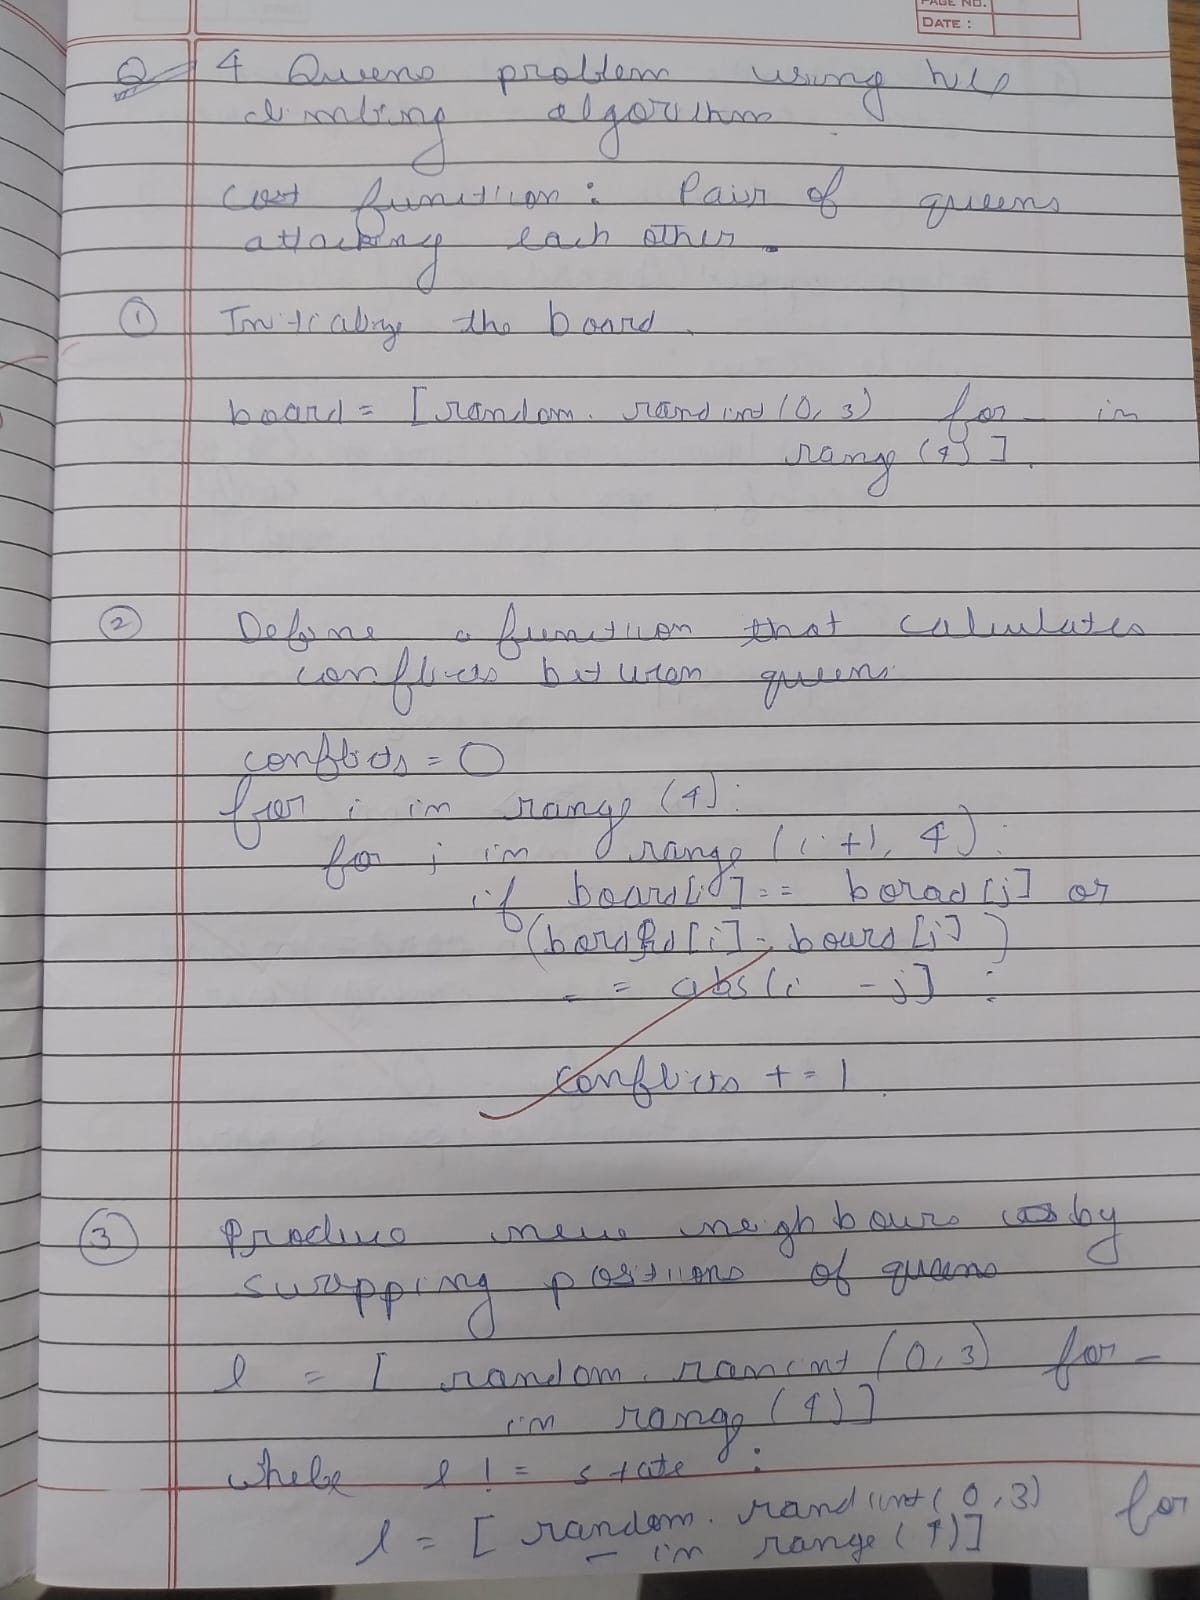 PAGE NO.
DATE :
Q 4 Queens problem using hill
climbing algorithm
cost function : Pair of queens
attacking each other.
① Initialize the board.
board = [random. randint (0, 3) for _ in
range (4)].
② Define a function that calculates
conflicts between queens.
conflicts = 0
for i in range (4):
for j in range (i+1, 4):
if board[i] == borad [j] or
(board[i] - board [j])
== abs(i - j] :
conflicts += 1.
③ Produce new neighbours by
swapping positions of queens
l = [ random. ranint (0, 3) for _
in range (4)]
while l != state :
l = [ random. randint( 0, 3) for
_ in range (4)]